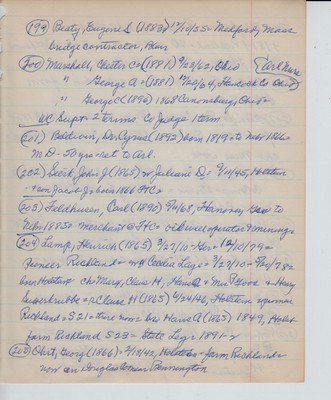 (199) Beaty, Eugene L (1883) 12/10/55 = Medford, Mass
bridge contractor, Blair
(200) Marshall, Chester Co (1881) 9/23/62, Ohio (Carl Muse
" George A = (1881) 12/20/64, Hancock Co Ohio)
" George C (1896) 1868 Canonsburg, Ohio =
Co Supt = 2 terms Co Judge 1 term
(201) Baldwin, Dr Cyrus (1892) born 1819 = to Nebr 1866
M D - 50 yrs =
(202) Seist, John J (1865) w Juliane D = 9/11/45, Holstein
= son Jacob J = born 1866 FtC =
(203) Feldhusen, Carl (1890) 7/2/68, Hanover, Ger to
Nebr 1885 = merchant = FtC = elev operator
(204) Lamp, Henrich (1865) 3/27/10 = Ger = 12/10/79 =
Pioneer Richland = w Cecilia Lage = 3/27/10 = 9/20/78 =
born Holstein ch = Mary, Claus H, Hans A = Mrs & Henry
= Claus H (1865) 6/24/46, Holstein
Richland = S21 = bro Hans A (1865) 1849, Holst
farm Richland S23 = State Leg = 1891-2
(205) Ohrt, Georg (1866) = 2/17/42, Holstein = farm Richland =
now in Douglas Co near Bennington